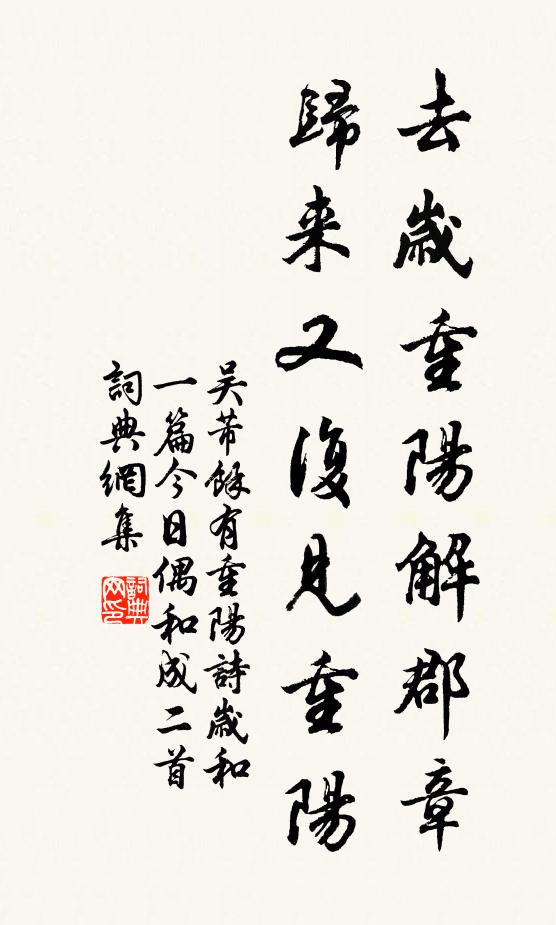 去歲重陽解郡章
歸来又復見重陽
吴芾餘有重陽詩歲和
一篇今日偶和成二首
詞典網集
詞典網印